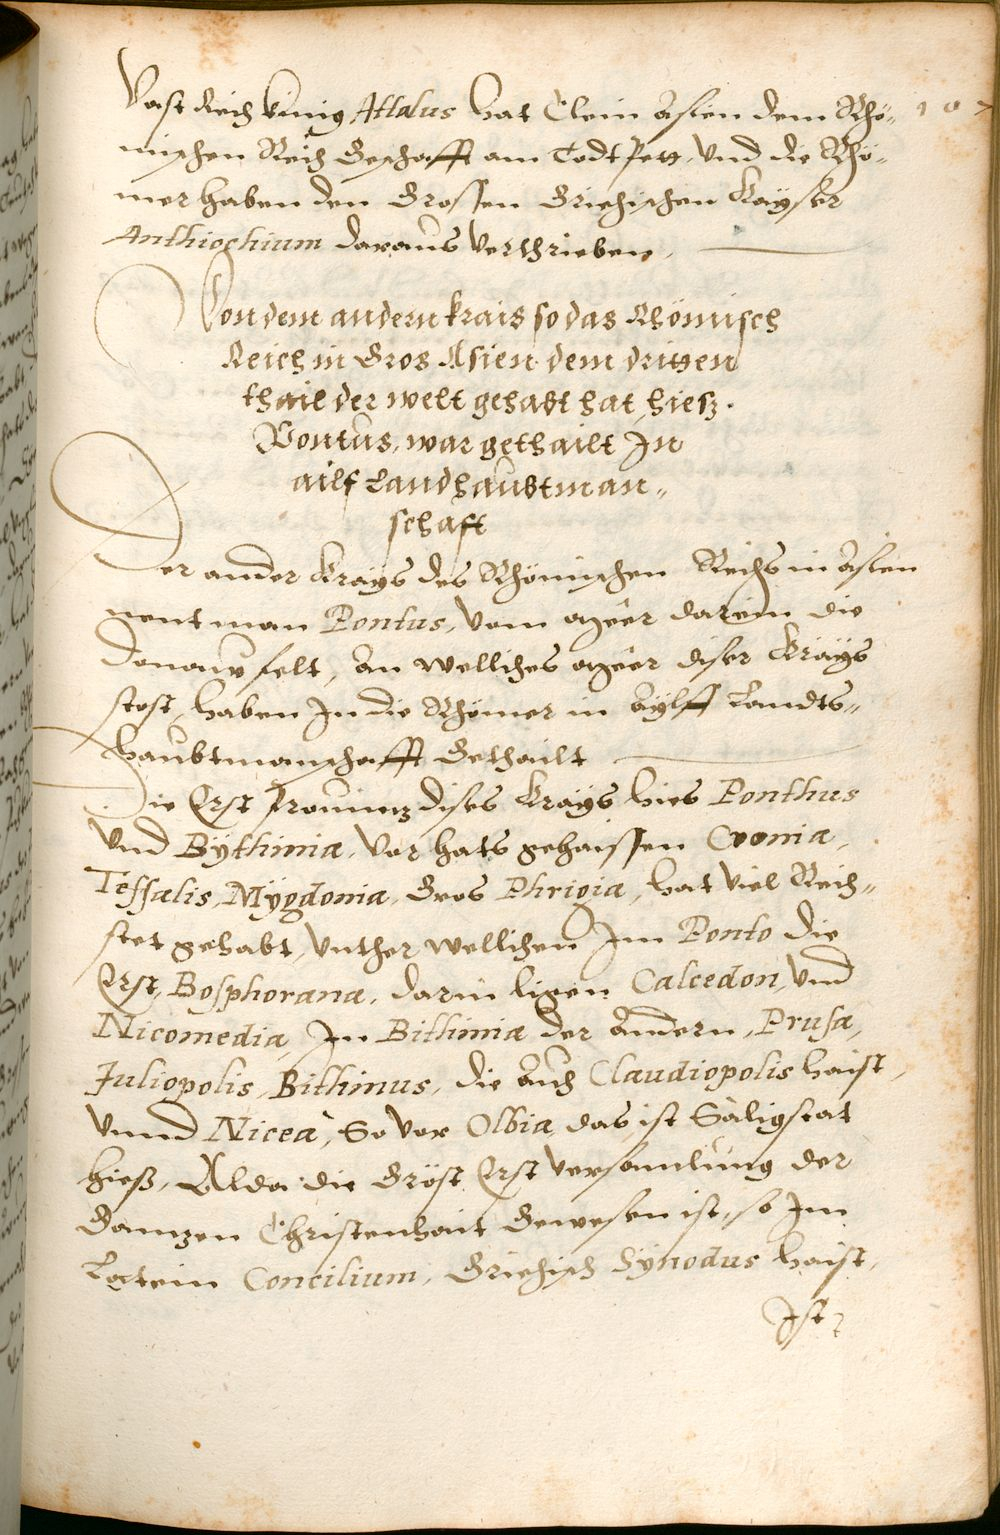 Vast Reich künig Attalus hat Clein Asien dem Rhö- 107
mischen Reich Geschafft am Todt Pett, Vnd die Rhö-
mer haben den Grossen Griechischen Kayser
Anthiochium daraus Verthrieben.
Von dem andern krais so das Rhömisch
Reich in Gros Asien dem dritten
thail der welt gehabt hat, hiesz.
Pontus, war gethailt In
ailf Landhaubtman„
schaft
Der ander Krays des Rhömischen Reichs in Asien
nent man Pontus, Vom Meer darein die
Donaw felt, An Welliches Meer diser Krays
stost, haben In die Rhömer in Aylff Landts„
haubtmanschafft Gethailt
Die Erst Prouintz dises Krays hies Ponthus
Vnd Bÿthinia, Vor hats gehaissen Cronia,
Tessalis, Mÿgdonia, Gros Phrigia, hat Viel Reich„
stet gehabt, Vnther Wellichen Im Ponto die
Erst, Bosphorana, darin ligen Calcedon, Vnd
Nicomedia, In Bithinia der Andern, Prusa,
Juliopolis, Bithinus, die Auch Claudiopolis haist,
Vnnd Nicea, So Vor Olbia, das ist Säligstat
hieß, Alda die Gröst Erst Versamlung der
Gantzen Christenhait Gewesen ist, so Im
Latein Concilium, Griechisch Sÿnodus haist,
Ist